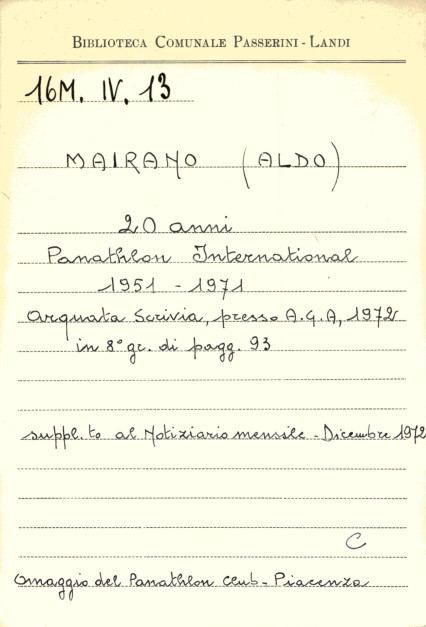 BIBLIOTECA COMUNALE PASSERINI - LANDI
16M. IV. 13
MAIRANO (ALDO)
20 anni
Panathlon International
1951 - 1971
Arquata Scrivia, presso A.G.A, 1972
in 8° gr. di pagg. 93
suppl.to al Notiziario mensile - Dicembre 1972
C
Omaggio del Panathlon Club - Piacenza